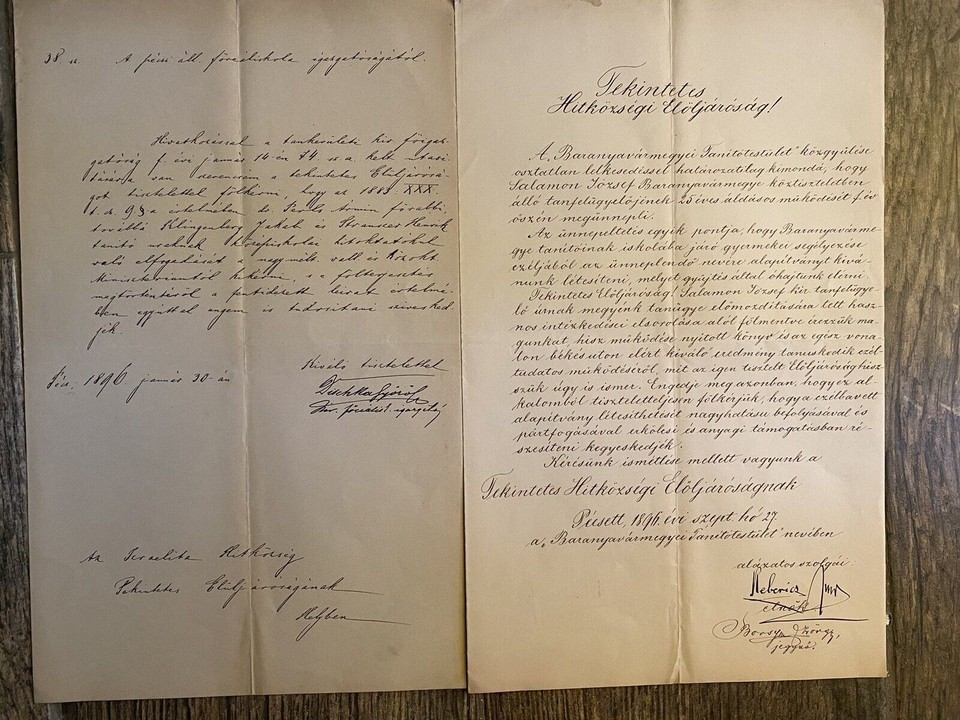 38 sz. A pécsi áll. főreáliskola igazgatóságától.
Hivatkozással a tankerületi kir. főigaz-
gatóság f. évi január 14-én 74 sz. a. kelt utasí-
tására van szerencsém a tekintetes Elöljárósá-
got tisztelettel fölkérni, hogy az 1883 XXX.
t. cz. értelmében dr. Perls Ármin főrabbi,
továbbá Klingenberg Jakab és Strausser Henrik
tanító uraknak középiskolai hitoktatókul
való elfogadását a nagymélt. vall. és közokt.
Ministeriumtól kikérni, s a fölterjesztés
megtörténtéről a fentidézett leirat értelmé-
ben egyúttal engem is tudósítani szívesked-
jék.
Pécs, 1896 január 30-án
Kiváló tisztelettel
Dischka Győző
főreálisk. igazgató
Az Izraelita Hitközség
Tekintetes Elüljáróságának
Helyben
Tekintetes
Hitközségi Elöljáróság!
A „Baranyavármegyei Tanítótestület" közgyűlése
osztatlan lelkesedéssel határozatilag kimondá, hogy
Salamon József Baranyavármegye köztiszteletben
álló tanfelügyelőjének 25 éves áldásos működését f. év
őszén megünnepli.
Az ünnepeltetés egyik pontja, hogy Baranyavárme-
gye tanítóinak iskolába járó gyermekei segélyezése
czéljából az ünneplendő nevére alapítványt kivá-
nunk létesíteni, melyet gyűjtés által óhajtunk elérni
Tekintetes Elöljáróság! Salamon József kir. tanfelügye-
lő úrnak megyénk tanügye előmozdítására tett hasz-
nos intézkedései elsorolása alól fölmentve érezzük ma-
gunkat, hisz működése nyitott könyv és az egész vona-
lon békés úton elért kiváló eredmény tanuskodik czél-
tudatos működéséről, mit az igen tisztelt Elöljáróság hisz-
szük úgy is ismer. Engedje meg azonban, hogy ez al-
kalomból tiszteletteljesen fölkérjük, hogy a czélbavett
alapítvány létesíthetését nagyhatásu befolyásával és
pártfogásával erkölcsi és anyagi támogatásban ré-
szesíteni kegyeskedjék.
Kérésünk ismétlése mellett vagyunk a
Tekintetes Hitközségi Elöljáróságnak
Pécsett, 1896. évi szept. hó 27.
a „Baranyavármegyei Tanítótestület" nevében
alázatos szolgái:
elnök
György,
jegyző.